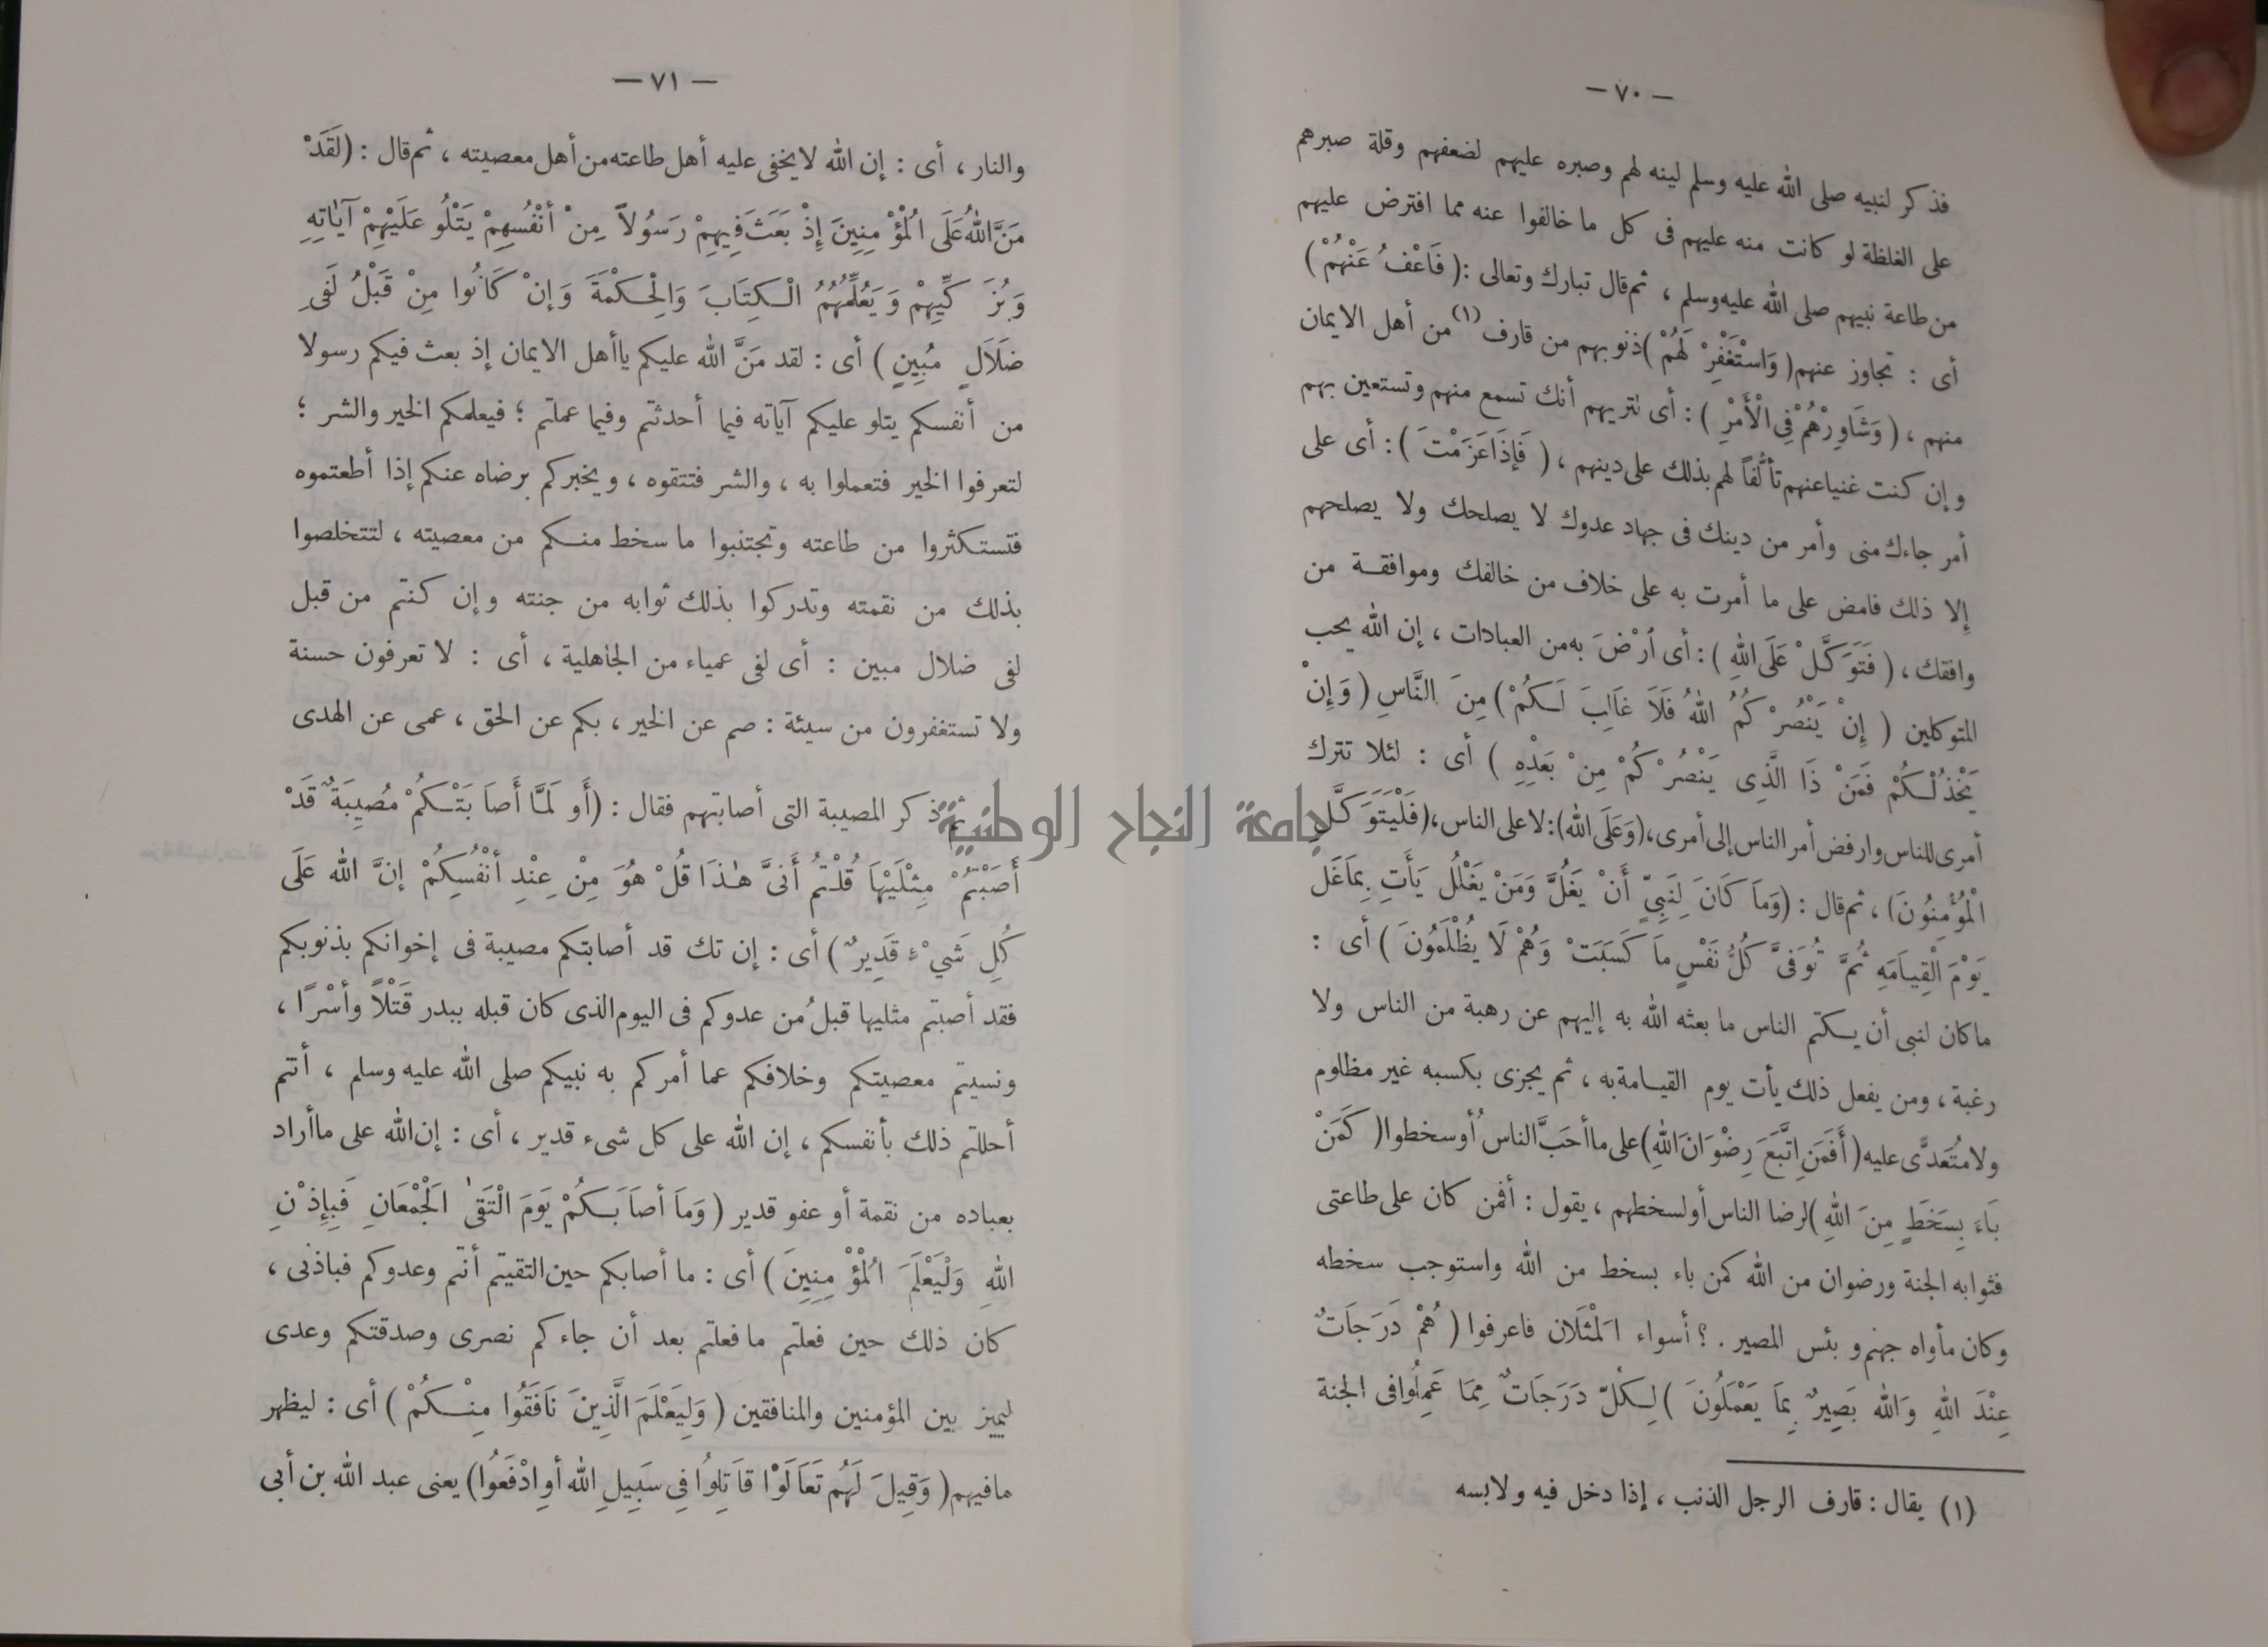 — ٧٠ —
فذكر لنبيه صلى الله عليه وسلم لينه لهم وصبره عليهم لضعفهم وقلة صبرهم
على الغلظة لو كانت منه عليهم فى كل ما خالفوا عنه مما افترض عليهم
من طاعة نبيهم صلى الله عليه وسلم ، ثم قال تبارك وتعالى : ( فَاعْفُ عَنْهُمْ )
أى : تجاوز عنهم ( وَاسْتَغْفِرْ لَهُمْ ) ذنوبهم من قارف (١) من أهل الايمان
منهم ، ( وَشَاوِرْهُمْ فِى الْأَمْرِ ) : أى لتريهم أنك تسمع منهم وتستعين بهم
وإن كنت غنيا عنهم تألُّفاً لهم بذلك على دينهم ، ( فَإِذَا عَزَمْتَ ) : أى على
أمر جاءك منى وأمر من دينك فى جهاد عدوك لا يصلحك ولا يصلحهم
إلا ذلك فامض على ما أمرت به على خلاف من خالفك وموافقة من
وافقك ، ( فَتَوَكَّلْ عَلَى اللهِ ) : أى ارْضَ به من العبادات ، إن الله يحب
المتوكلين ( إِنْ يَنْصُرْكُمُ اللهُ فَلَا غَالِبَ لَكُمْ ) مِنَ النَّاسِ ( وَإِنْ
يَخْذُلْكُمْ فَمَنْ ذَا الَّذِى يَنْصُرْكُمْ مِنْ بَعْدِهِ ) أى : لئلا تترك
أمرى للناس وارفض أمر الناس إلى أمرى ، ( وَعَلَى الله ) : لا على الناس ، ( فَلْيَتَوَكَّلِ
الْمُؤْمِنُونَ ) ، ثم قال : ( وَمَا كَانَ لِنَبِىٍّ أَنْ يَغُلَّ وَمَنْ يَغْلُلْ يَأْتِ بِمَا غَلَّ
يَوْمَ الْقِيَامَةِ ثُمَّ تُوَفَّى كُلُّ نَفْسٍ مَا كَسَبَتْ وَهُمْ لَا يُظْلَمُونَ ) أى :
ما كان لنبى أن يكتم الناس ما بعثه الله به إليهم عن رهبة من الناس ولا
رغبة ، ومن يفعل ذلك يأت يوم القيامة به ، ثم يجزى بكسبه غير مظلوم
ولا مُتَعَدًّى عليه ( أَفَمَنِ اتَّبَعَ رِضْوَانَ اللهِ ) على ما أحَبَّ الناس أو سخطوا ( كَمَنْ
بَاءَ بِسَخَطٍ مِنَ اللهِ ) لرضا الناس أو لسخطهم ، يقول : أفمن كان على طاعتى
فثوابه الجنة ورضوان من الله كمن باء بسخط من الله واستوجب سخطه
وكان مأواه جهنم وبئس المصير . ؟ أسواء المثلان فاعرفوا ( هُمْ دَرَجَاتٌ
عِنْدَ اللهِ وَالله بَصِيرٌ بِمَا يَعْمَلُونَ ) لِكلّ دَرَجَاتٌ مِمَا عَمِلُوا فى الجنة
(١) يقال : قارف الرجل الذنب ، إذا دخل فيه ولابسه
— ٧١ —
والنار ، أى : إن الله لا يخفى عليه أهل طاعته من أهل معصيته ، ثم قال : ( لَقَدْ
مَنَّ اللهُ عَلَى الْمُؤْمِنِينَ إِذْ بَعَثَ فِيهِمْ رَسُولاً مِنْ أَنْفُسِهِمْ يَتْلُو عَلَيْهِمْ آيَاتِهِ
وَيُزَكِّيهِمْ وَيُعَلِّمُهُمُ الْكِتَابَ وَالْحِكْمَةَ وَإِنْ كَانُوا مِنْ قَبْلُ لَفِى
ضَلَالٍ مُبِينٍ ) أى : لقد مَنَّ الله عليكم يا أهل الايمان إذ بعث فيكم رسولا
من أنفسكم يتلو عليكم آياته فيما أحدثتم وفيما عملتم ؛ فيعلمكم الخير والشر ؛
لتعرفوا الخير فتعملوا به ، والشر فتتقوه ، ويخبركم برضاه عنكم إذا أطعتموه
فتستكثروا من طاعته وتجتنبوا ما سخط منكم من معصيته ، لتتخلصوا
بذلك من نقمته وتدركوا بذلك ثوابه من جنته وإن كنتم من قبل
لفى ضلال مبين : أى لفى عمياء من الجاهلية ، أى : لا تعرفون حسنة
ولا تستغفرون من سيئة : صم عن الخير ، بكم عن الحق ، عمى عن الهدى
ثم ذكر المصيبة التى أصابتهم فقال : ( أَوَ لَمَّا أَصَابَتْكُمْ مُصِيبَةٌ قَدْ
أَصَبْتُمْ مِثْلَيْهَا قُلْتُمْ أَنَّى هٰذَا قُلْ هُوَ مِنْ عِنْدِ أَنْفُسِكُمْ إنَّ الله عَلَى
كُلِ شَيْءٍ قَدِيرٌ ) أى : إن تك قد أصابتكم مصيبة فى إخوانكم بذنوبكم
فقد أصبتم مثليها قبلُ من عدوكم فى اليوم الذى كان قبله ببدر قَتْلاً وأسْرًا ،
ونسيتم معصيتكم وخلافكم عما أمركم به نبيكم صلى الله عليه وسلم ، أنتم
أحللتم ذلك بأنفسكم ، إن الله على كل شىء قدير ، أى : إن الله على ما أراد
بعباده من نقمة أو عفو قدير ( وَمَا أَصَابَكُمْ يَوْمَ الْتَقَىٰ الْجَمْعَانِ فَبِإِذْنِ
اللهِ وَلْيَعْلَمَ الْمُؤْمِنِينَ ) أى : ما أصابكم حين التقيتم أنتم وعدوكم فباذنى ،
كان ذلك حين فعلتم ما فعلتم بعد أن جاءكم نصرى وصدقتكم وعدى
ليميز بين المؤمنين والمنافقين ( وَلِيَعْلَمَ الَّذِينَ نَافَقُوا مِنْكُمْ ) أى : ليظهر
ما فيهم ( وَقِيلَ لَهُم تَعَالَوْا قَاتِلُوا فِى سَبِيلِ الله أَوِ ادْفَعُوا ) يعنى عبد الله بن أبى
جامعة النجاح الوطنية